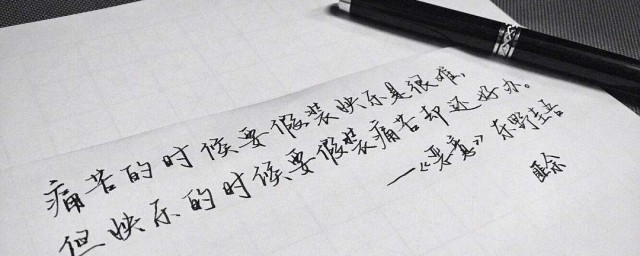 痛苦的时候要假装快乐是很难，
但快乐的时候要假装痛苦却还好办。
—《恶意》东野圭吾